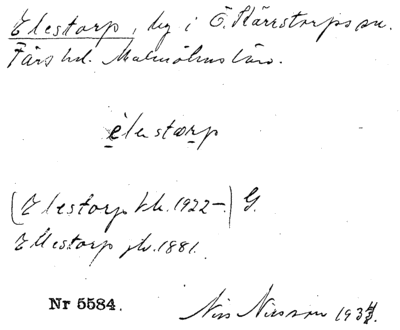 Elestorp, by i Ö. Kärrstorps sn.
Färs hd. Malmöhus län.
èlestærp
(Elestorp kb. 1922–) G.
Ellestorp jb. 1881.
Nr 5584. Nils Nilsson 193